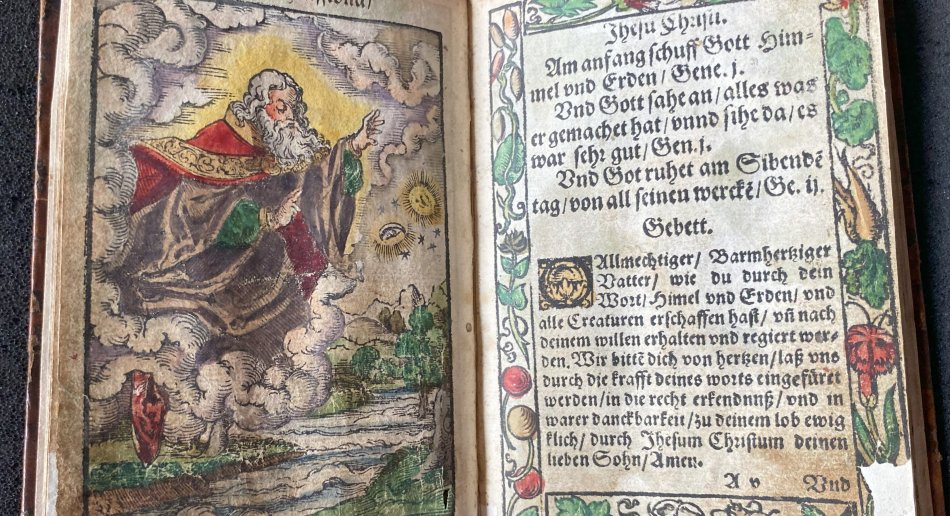 Jhesu Christi.
Am anfang schuff Gott Him-
mel vnd Erden/ Gene. j.
Vnd Gott sahe an/ alles was
er gemachet hat/ vnnd sihe da/ es
war sehr gut/ Gen. j.
Vnd Got ruhet am Sibendē
tag/ von all seinen werckē/ Ge. ij.
Gebett.
O Allmechtiger/ Barmhertziger
Vatter/ wie du durch dein
Wort/ Himel vnd Erden/ vnd
alle Creaturen erschaffen hast/ vñ nach
deinem willen erhalten vnd regiert wer-
den. Wir bittē dich von hertzen/ laß vns
durch die krafft deines worts eingefüret
werden/ in die recht erkendnuß/ vnd in
warer danckbarkeit/ zu deinem lob ewig
klich/ durch Jhesum Christum deinen
lieben Sohn/ Amen.
A v Vnd